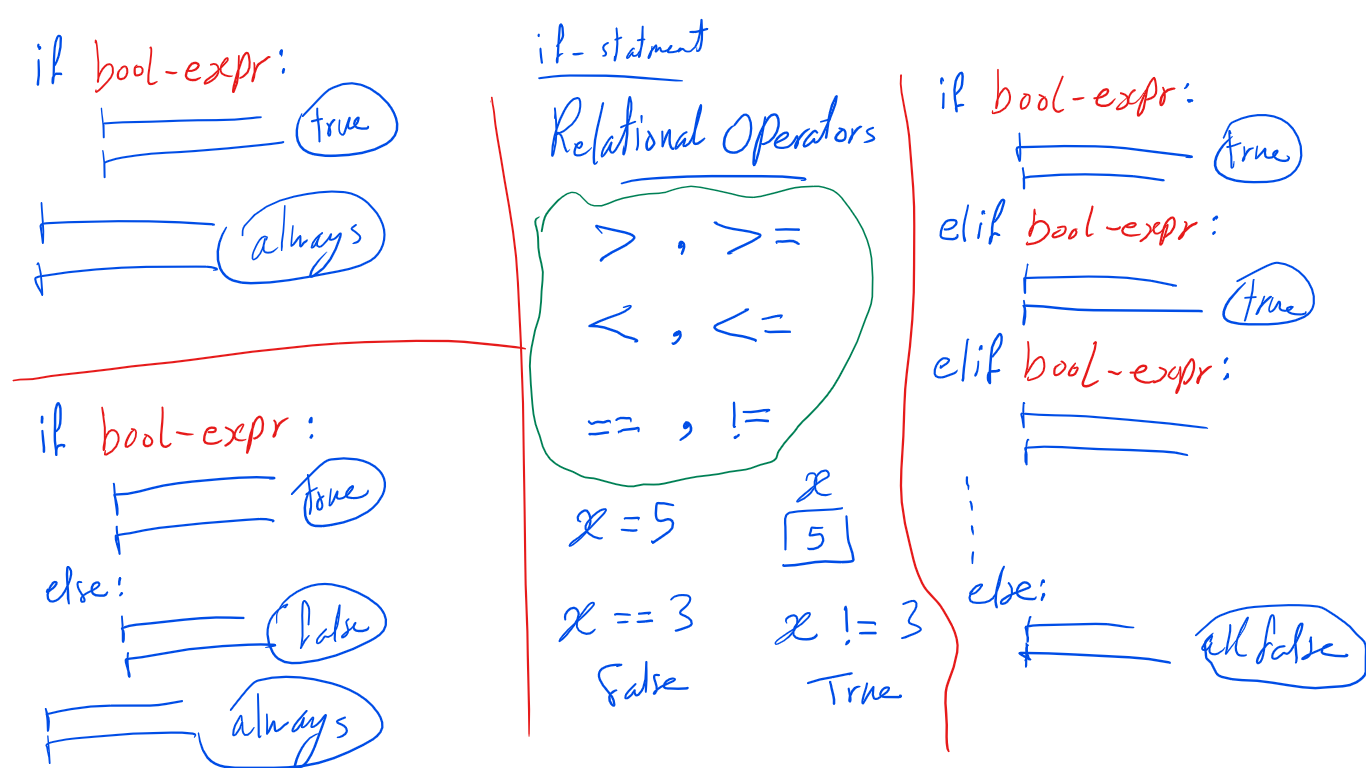 if bool-expr:
true
always
if bool-expr:
true
else:
false
always
if-statment
Relational Operators
> , >=
< , <=
== , !=
x = 5
x
5
x == 3
x != 3
False
True
if bool-expr:
true
elif bool-expr:
true
elif bool-expr:
else:
all false